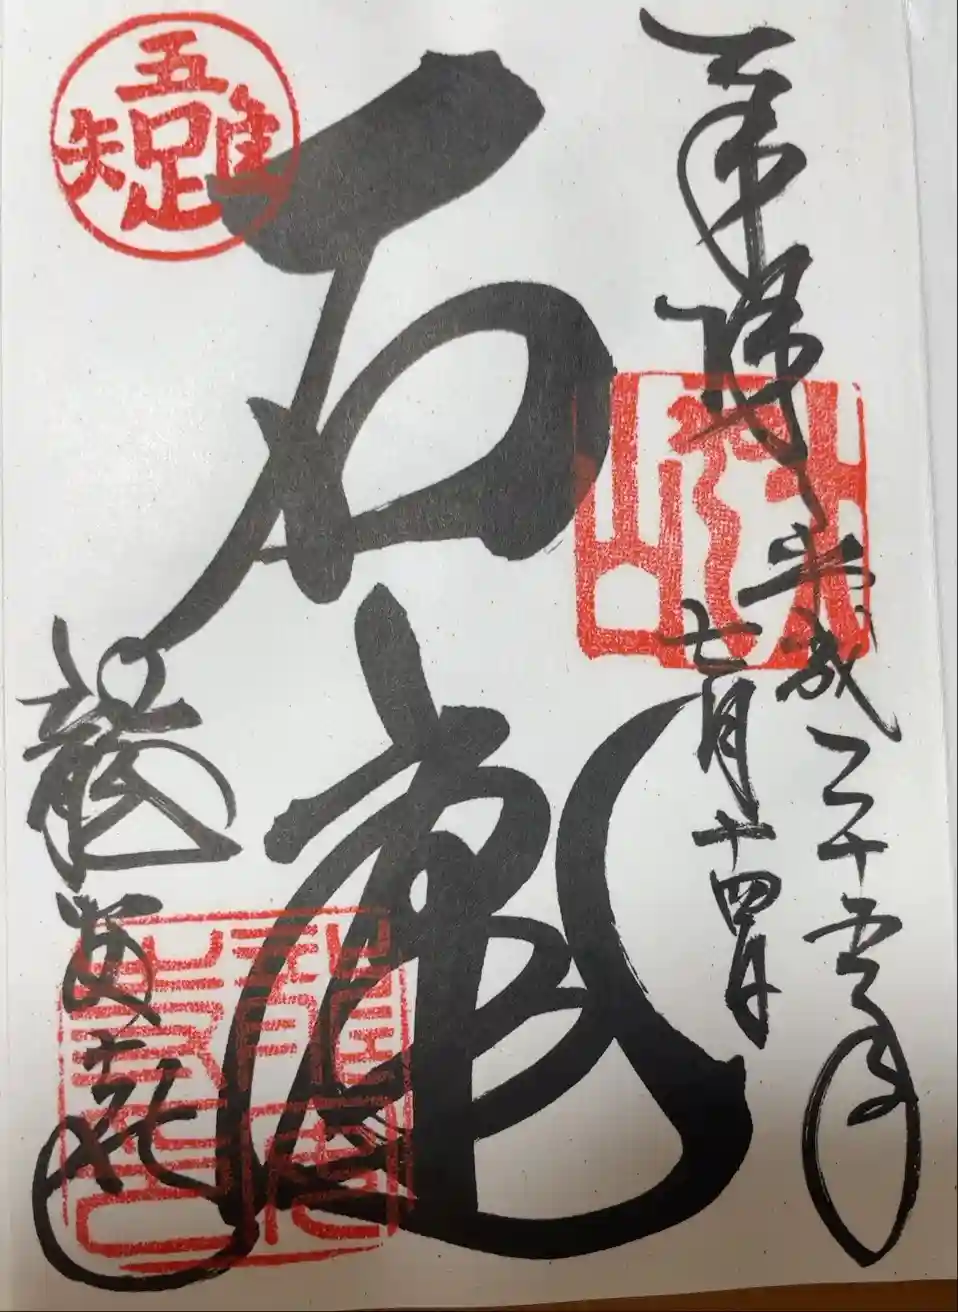 奉拝
平成二十五年
七月十四日
石庭
龍安寺
吾唯足知